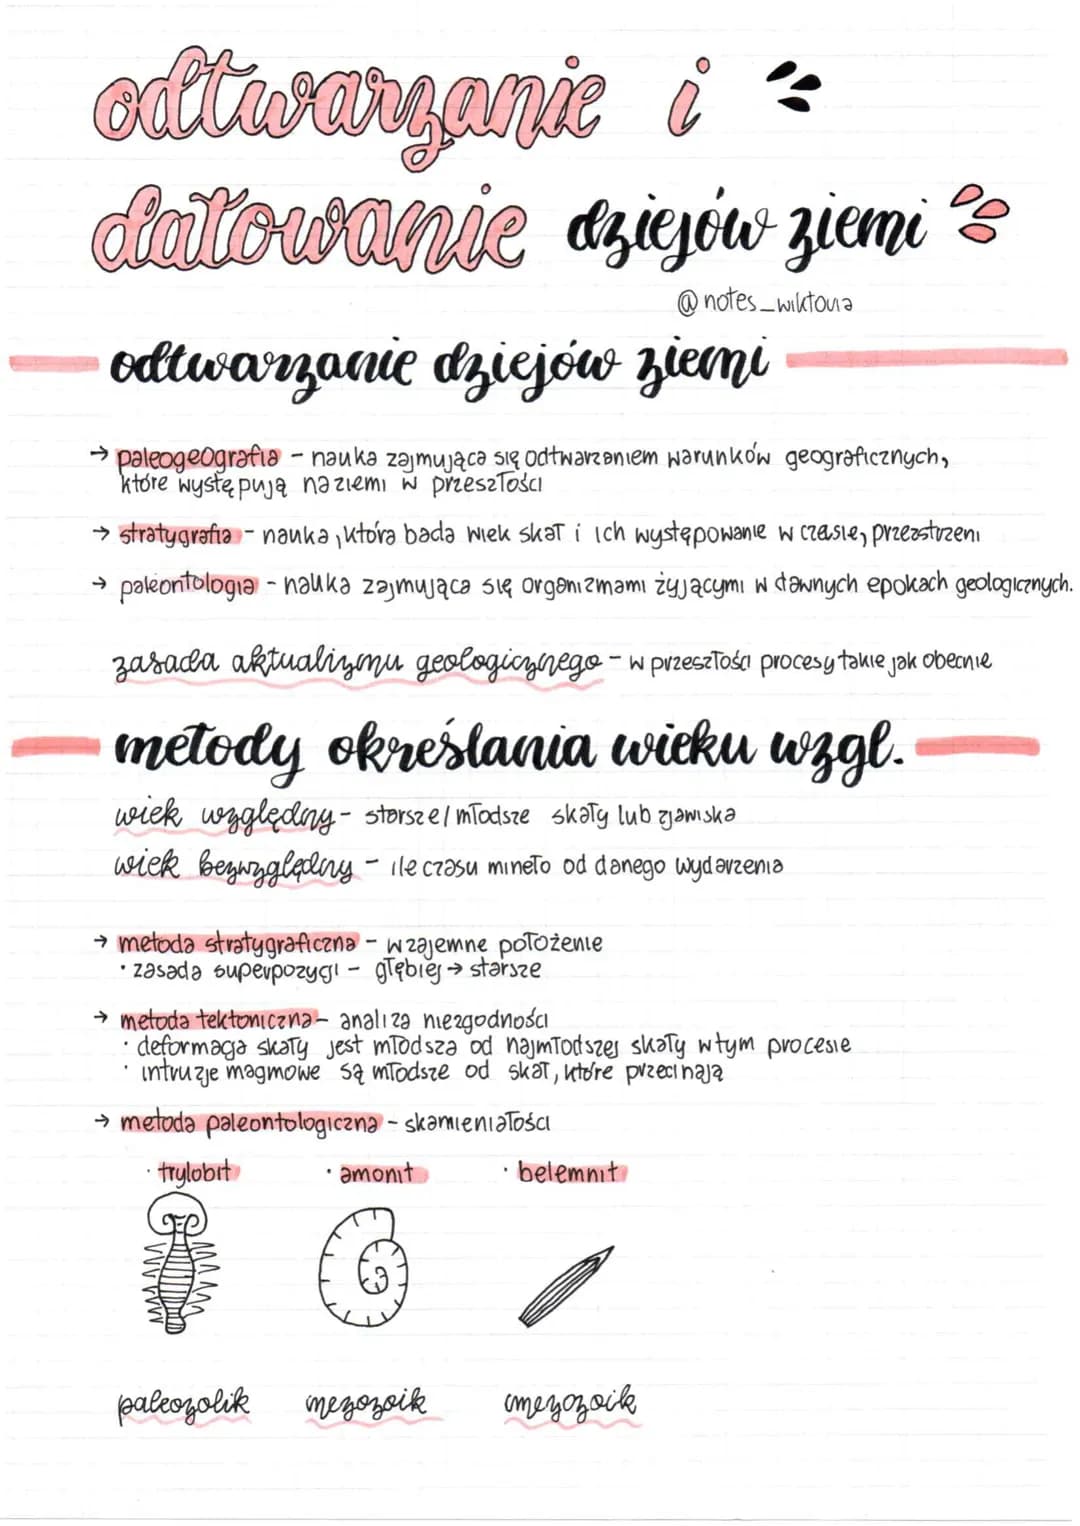 odtwarzanie i
datowanie dziejów ziemi
@notes_wiktoria
odtwarzanie dziejów ziemi
→ paleogeografia - nauka zajmująca się odtwarzaniem warunków geograficznych,
które występują na ziemi w przeszłości
→ stratygrafia - nauka, która bada wiek skał i ich występowanie w czasie, przezstrzeni
→ paleontologia - nauka zajmująca się organizmami żyjącymi w dawnych epokach geologicznych.
zasada aktualizmu geologicznego - w przeszłości procesy takie jak obecnie
metody określania wieku wzgl.
wiek względny - starsze/młodsze skały lub zjawiska
wiek bezwzględny - ile czasu mineło od danego wydarzenia
→ metoda stratygraficzna - wzajemne położenie
· zasada superpozycji - głębiej → starsze
→ metoda tektoniczna - analiza niezgodności
· deformacja skały jest młodsza od najmłodszej skały w tym procesie
· intruzje magmowe są młodsze od skał, które przecinają
→ metoda paleontologiczna - skamieniałości
· trylobit · amonit · belemnit
paleozolik mezozoik mezozoik